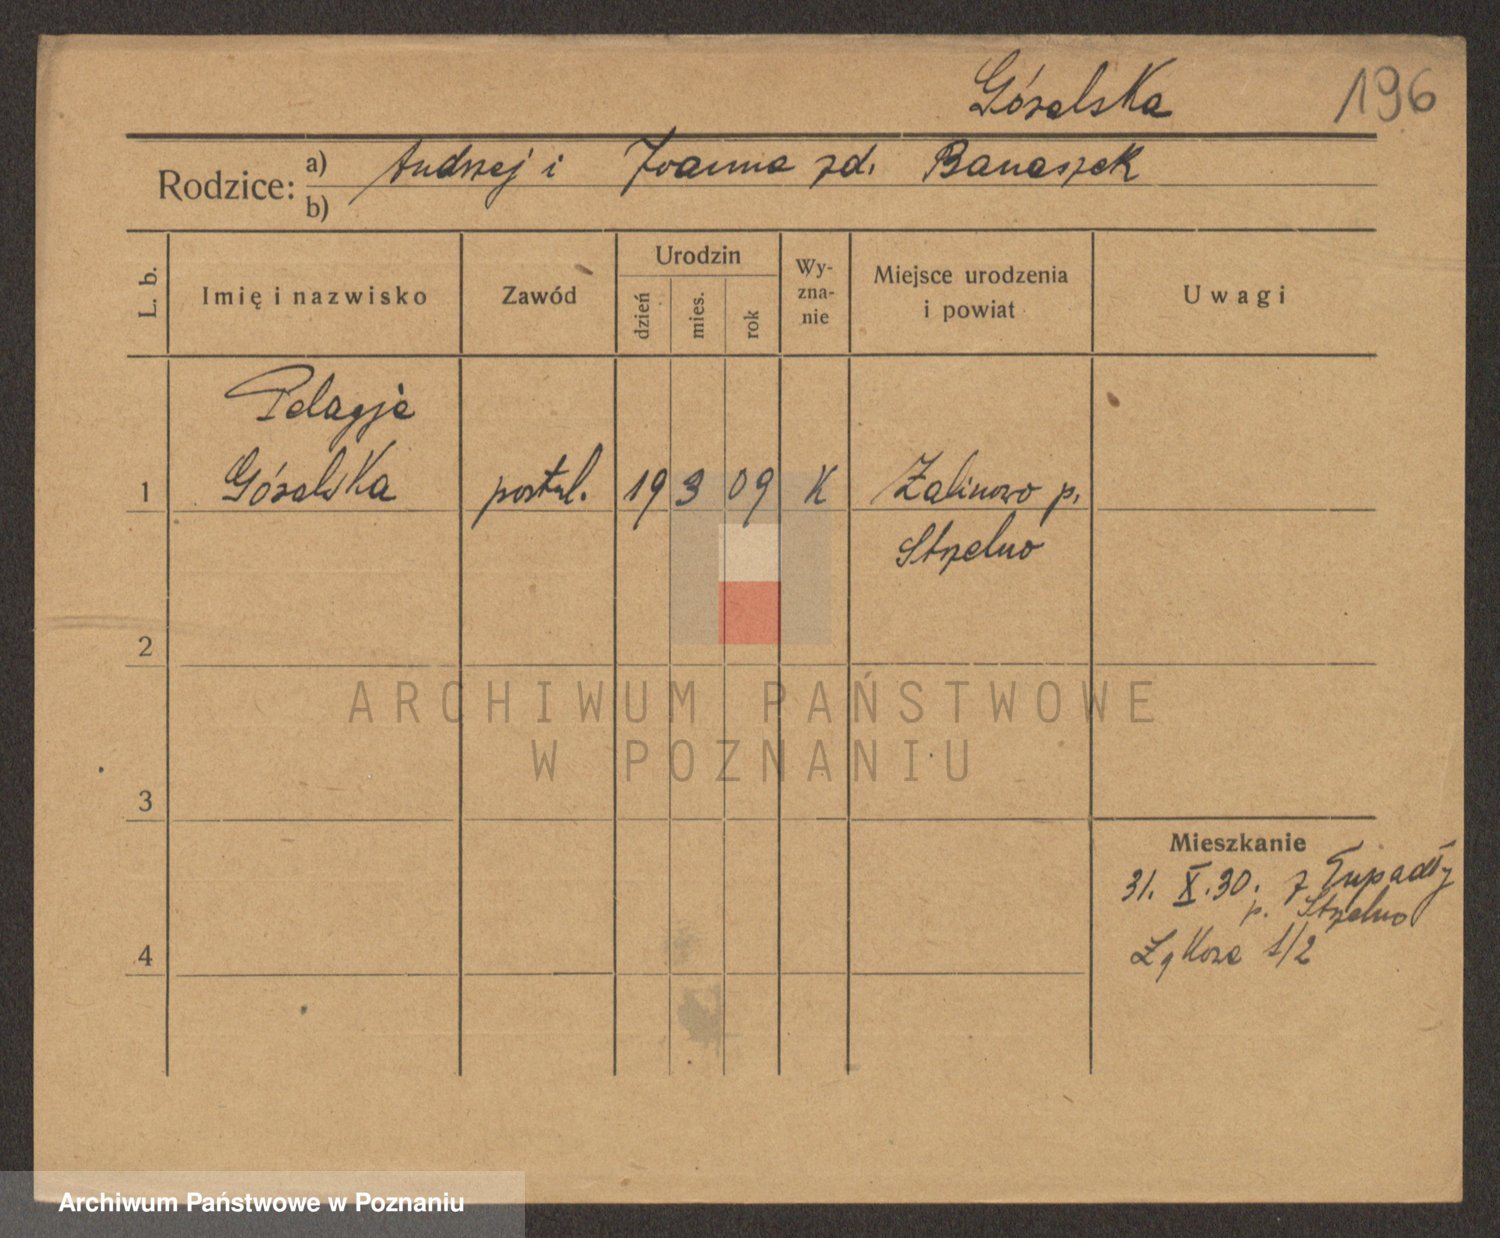 Góralska 196
Rodzice: a) Andrzej i Joanna zd. Banaszek
b)
L. b. Imię i nazwisko Zawód Urodzin dzień mies. rok Wyznanie Miejsce urodzenia i powiat Uwagi
Pelagja
1 Góralska postul. 19 3 09 K Zalinowo p.
Strzelno
2
ARCHIWUM PAŃSTWOWE
W POZNANIU
3
Mieszkanie
31. X. 30. z Tupadły
p. Strzelno
4 Łąkowa 1/2
Archiwum Państwowe w Poznaniu